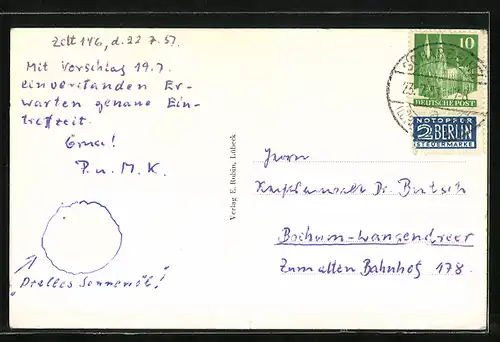 Zelt 146, d. 22.7.51.
Mit Vorschlag 19.7.
einverstanden Er-
warten genaue Ein-
treffzeit.
P. u. M. K.
"Pralles Sonnenöl!"
Verlag E. Rubin, Lübeck
10
DEUTSCHE POST
NOTOPFER
2 BERLIN
STEUERMARKE
Herrn
Dr. Butsch
Bochum-Langendreer
Zum alten Bahnhof 178.